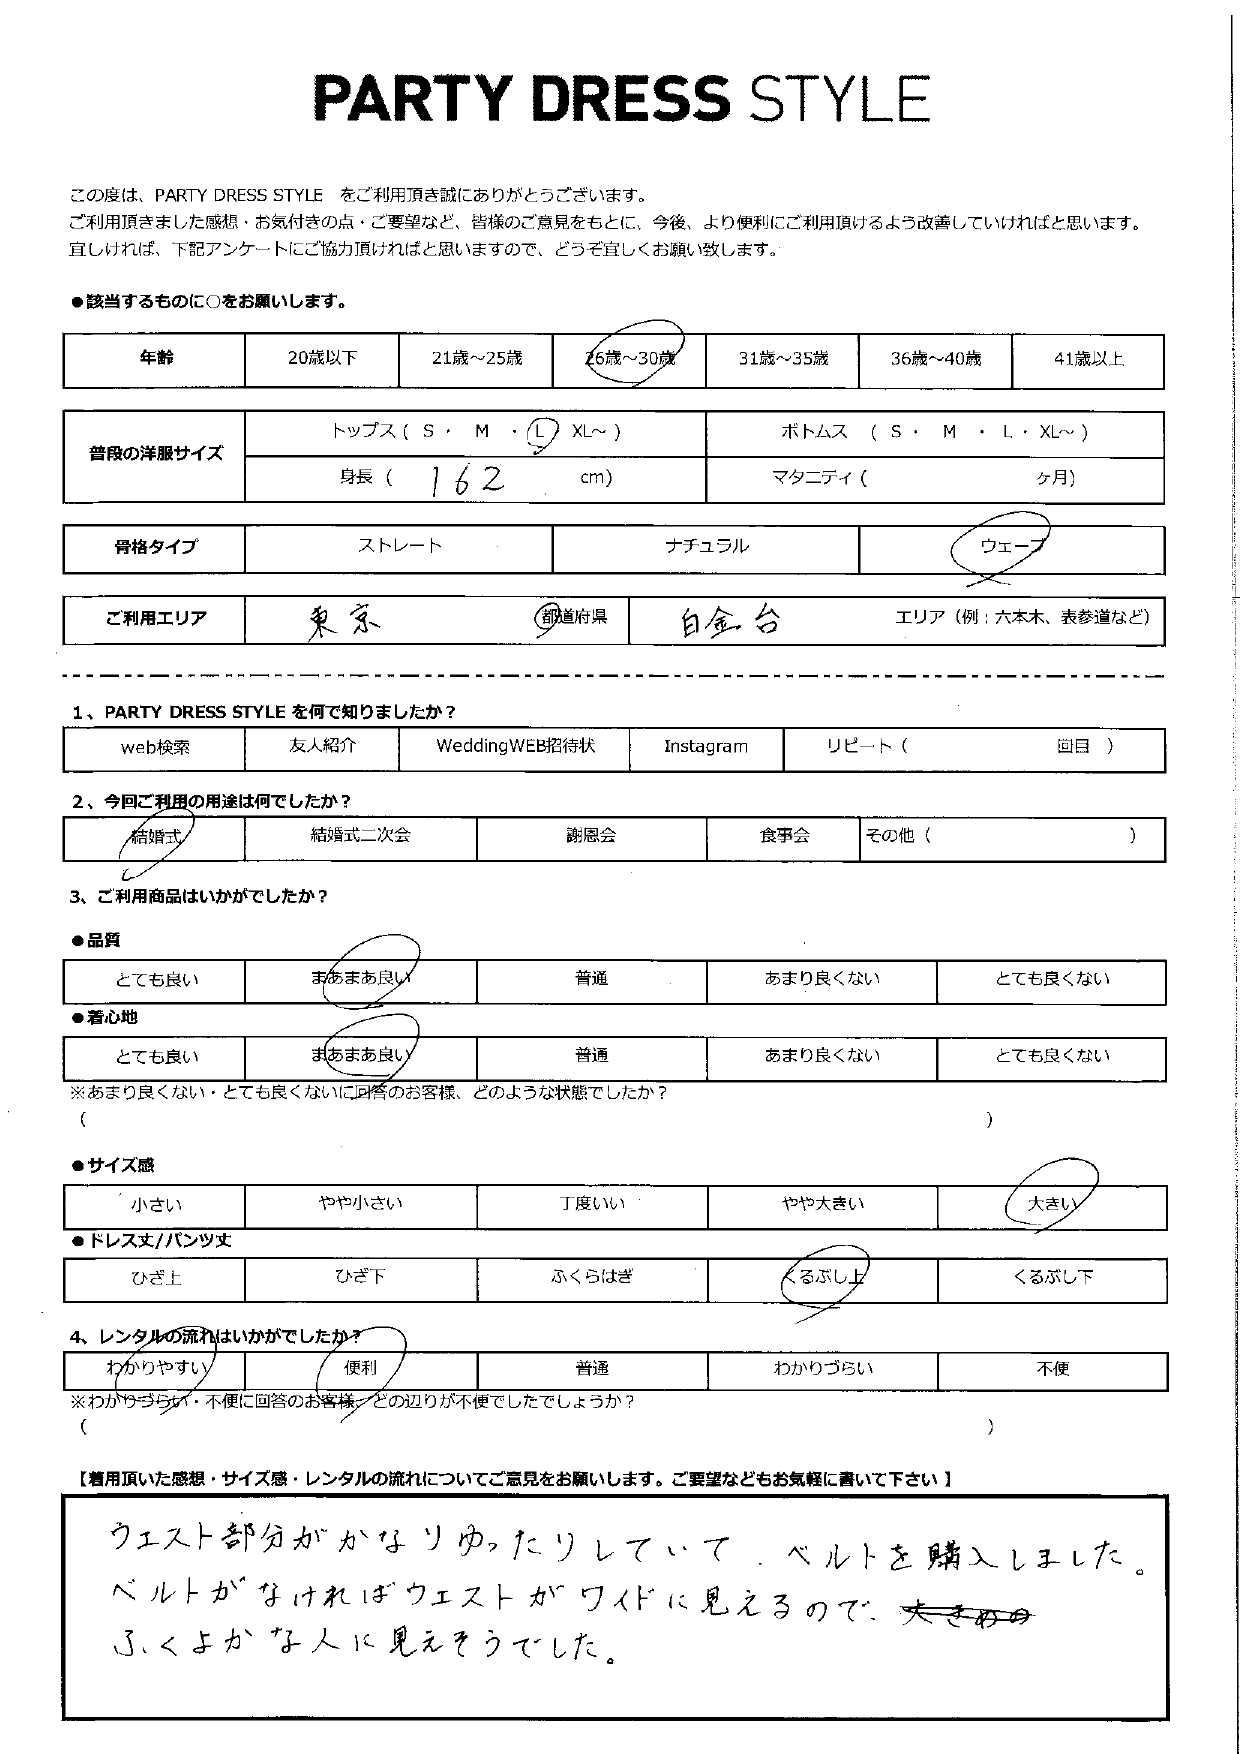 PARTY DRESS STYLE
この度は、PARTY DRESS STYLE　をご利用頂き誠にありがとうございます。
ご利用頂きました感想・お気付きの点・ご要望など、皆様のご意見をもとに、今後、より便利にご利用頂けるよう改善していければと思います。
宜しければ、下記アンケートにご協力頂ければと思いますので、どうぞ宜しくお願い致します。
●該当するものに○をお願いします。
年齢 20歳以下 21歳～25歳 26歳～30歳 31歳～35歳 36歳～40歳 41歳以上
普段の洋服サイズ
トップス ( S ・ M ・ L XL～ ) ボトムス ( S ・ M ・ L ・ XL～ )
身長 ( 162 cm) マタニティ ( ヶ月)
骨格タイプ ストレート ナチュラル ウェーブ
ご利用エリア 東京 都道府県 白金台 エリア（例：六本木、表参道など）
1、PARTY DRESS STYLE を何で知りましたか？
web検索 友人紹介 WeddingWEB招待状 Instagram リピート ( 回目 )
2、今回ご利用の用途は何でしたか？
結婚式 結婚式二次会 謝恩会 食事会 その他 ( )
3、ご利用商品はいかがでしたか？
●品質
とても良い まあまあ良い 普通 あまり良くない とても良くない
●着心地
とても良い まあまあ良い 普通 あまり良くない とても良くない
※あまり良くない・とても良くないに回答のお客様、どのような状態でしたか？
( )
●サイズ感
小さい やや小さい 丁度いい やや大きい 大きい
●ドレス丈/パンツ丈
ひざ上 ひざ下 ふくらはぎ くるぶし上 くるぶし下
4、レンタルの流れはいかがでしたか？
わかりやすい 便利 普通 わかりづらい 不便
※わかりづらい・不便に回答のお客様、どの辺りが不便でしたでしょうか？
( )
【着用頂いた感想・サイズ感・レンタルの流れについてご意見をお願いします。ご要望などもお気軽に書いて下さい 】
ウエスト部分がかなりゆったりしていて、ベルトを購入しました。
ベルトがなければウエストがワイドに見えるので、
ふくよかな人に見えそうでした。